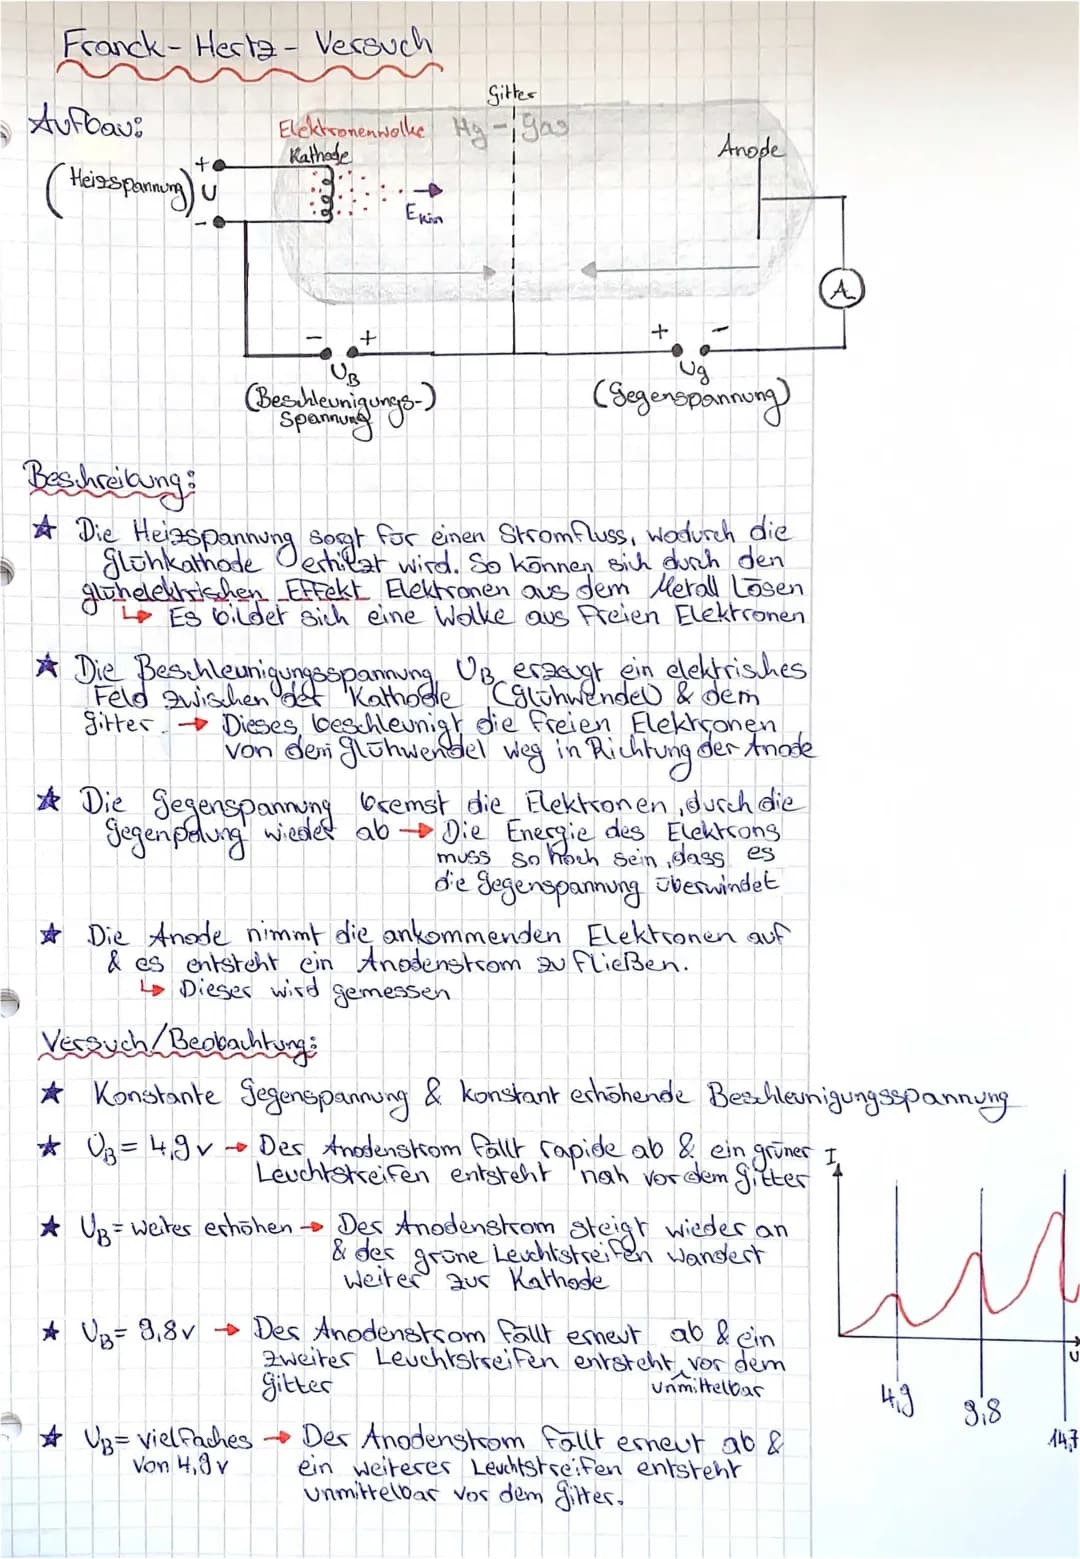 Franck-Hertz-Versuch
Gitter
Aufbau:
Elektronenwolke Hg-Gas
Kathode
Anode
+
(Heizspannung) U
-
Ekin
A
- +
+ -
UB
Ug
(Beschleunigungs-)
Spannung
(Gegenspannung)
Beschreibung:
☆ Die Heizspannung sorgt für einen Stromfluss, wodurch die
Glühkathode erhitzt wird. So können sich durch den
glühelektrischen Effekt Elektronen aus dem Metall lösen
↳ Es bildet sich eine Wolke aus freien Elektronen
☆ Die Beschleunigungsspannung UB erzeugt ein elektrisches
Feld zwischen der Kathode (Glühwendel) & dem
Gitter. → Dieses beschleunigt die freien Elektronen
von dem Glühwendel weg in Richtung der Anode
☆ Die Gegenspannung bremst die Elektronen, durch die
Gegenpolung wieder ab → Die Energie des Elektrons
muss so hoch sein, dass es
die Gegenspannung überwindet
☆ Die Anode nimmt die ankommenden Elektronen auf
& es entsteht ein Anodenstrom zu fließen.
↳ Dieser wird gemessen
Versuch/Beobachtung:
☆ Konstante Gegenspannung & konstant erhöhende Beschleunigungsspannung
☆ UB = 4,9 v → Der Anodenstrom fällt rapide ab & ein grüner
Leuchtstreifen entsteht nah vor dem Gitter
☆ UB = weiter erhöhen → Der Anodenstrom steigt wieder an
& der grüne Leuchtstreifen wandert
weiter zur Kathode
☆ UB = 9,8 v → Der Anodenstrom fällt erneut ab & ein
zweiter Leuchtstreifen entsteht vor dem
Gitter
unmittelbar
☆ UB = vielfaches → Der Anodenstrom fällt erneut ab &
von 4,9 v ein weiterer Leuchtstreifen entsteht
unmittelbar vor dem Gitter.
I
U
4,9
9,8
14,7